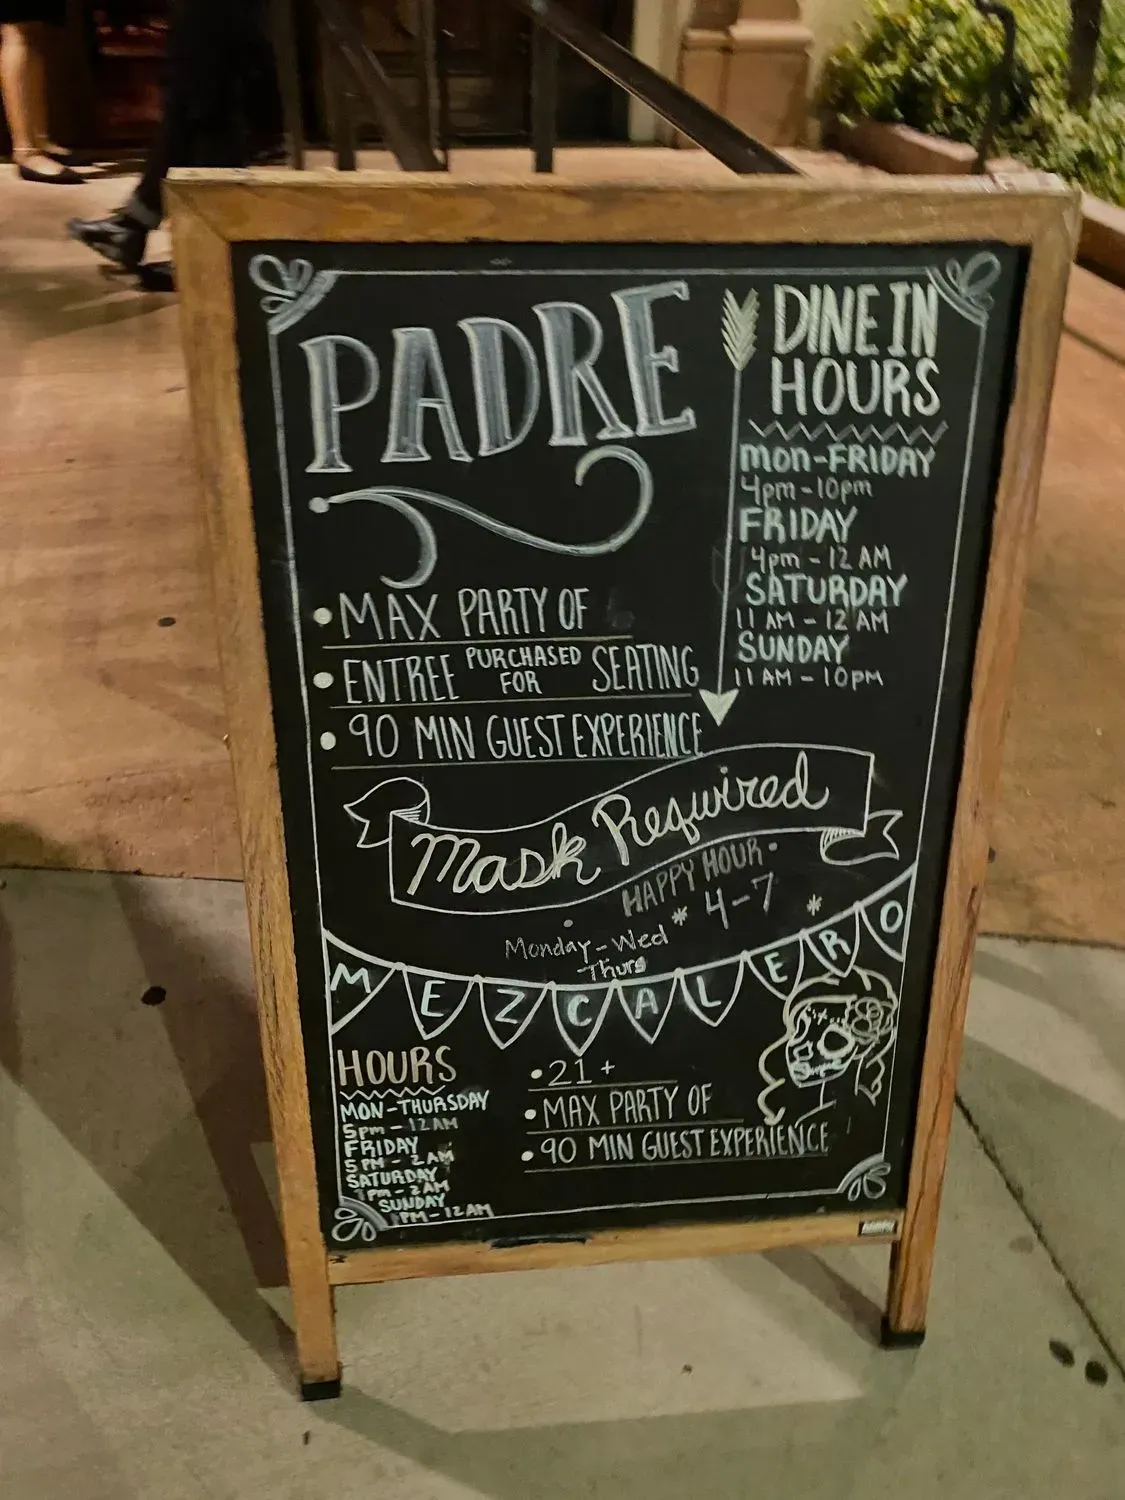 PADRE
• MAX PARTY OF
• ENTREE PURCHASED FOR SEATING
• 90 MIN GUEST EXPERIENCE
DINE IN
HOURS
MON-FRIDAY
4pm-10pm
FRIDAY
4pm - 12 AM
SATURDAY
11 AM - 12 AM
SUNDAY
11 AM - 10PM
Mask Required
HAPPY HOUR •
* 4-7 *
Monday - Wed
Thurs
MEZCALERO
HOURS
MON-THURSDAY
5pm - 12AM
FRIDAY
5PM - 2AM
SATURDAY
1pm - 2AM
SUNDAY
1PM - 12AM
• 21+
• MAX PARTY OF
• 90 MIN GUEST EXPERIENCE